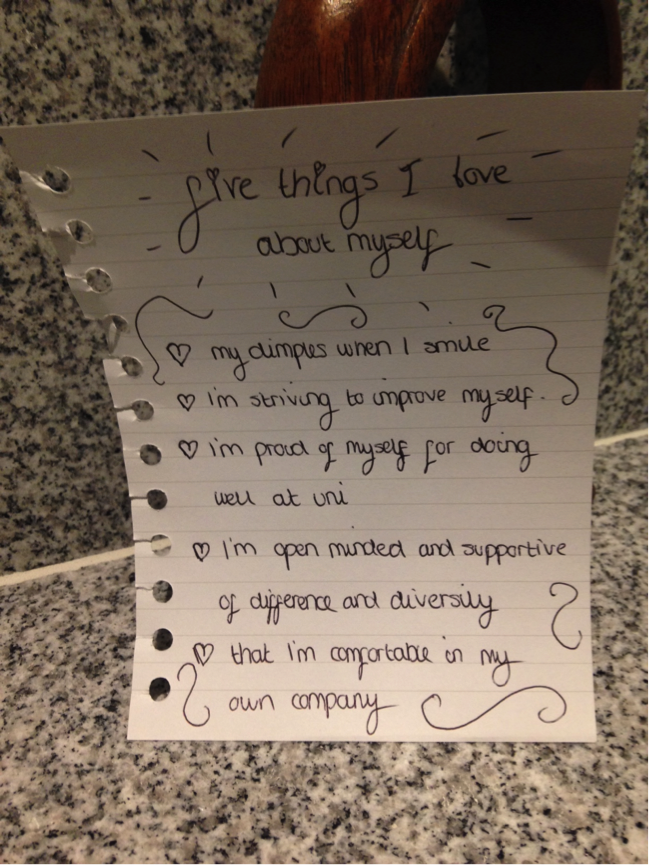 five things I love
about myself
♡ my dimples when I smile
♡ i'm striving to improve myself.
♡ i'm proud of myself for doing
well at uni
♡ I'm open minded and supportive
of difference and diversity
♡ that I'm comfortable in my
own company